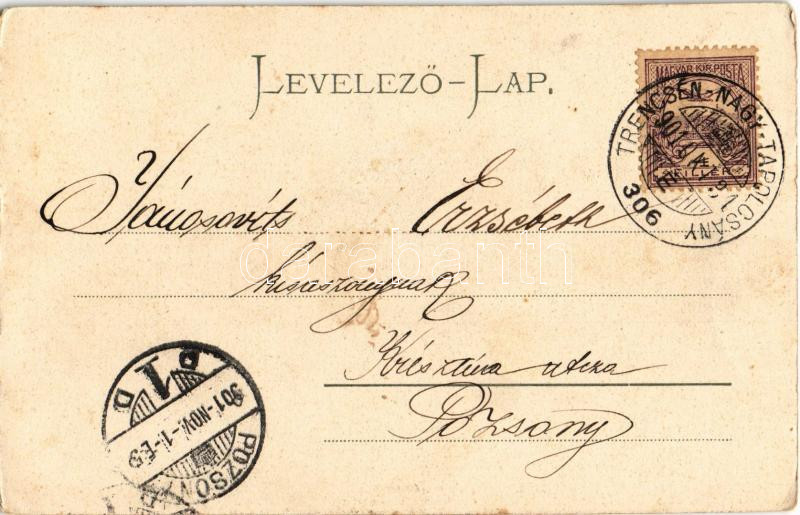 LEVELEZŐ-LAP.
MAGYAR KIR. POSTA
FILLÉR
TRENCSÉN-NAGY-TAPOLCSÁNY
306
Jánosovits Erzsébeth
kisasszonynak
Krisztina utcza
Pozsony
POZSONY
901-NOV.-1.-E
1
D
darabanth